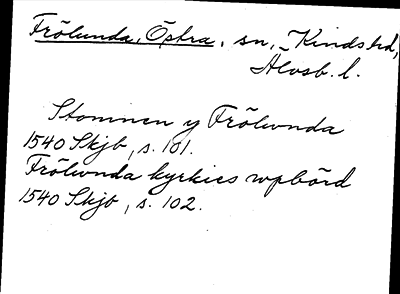 Frölunda, Östra, sn, Kinds hd,
Älvsb. l.
Stommen y Frölwnda
1540 Skjb, s. 101.
Frölwnda kyrkies wpbörd
1540 Skjb, s. 102.